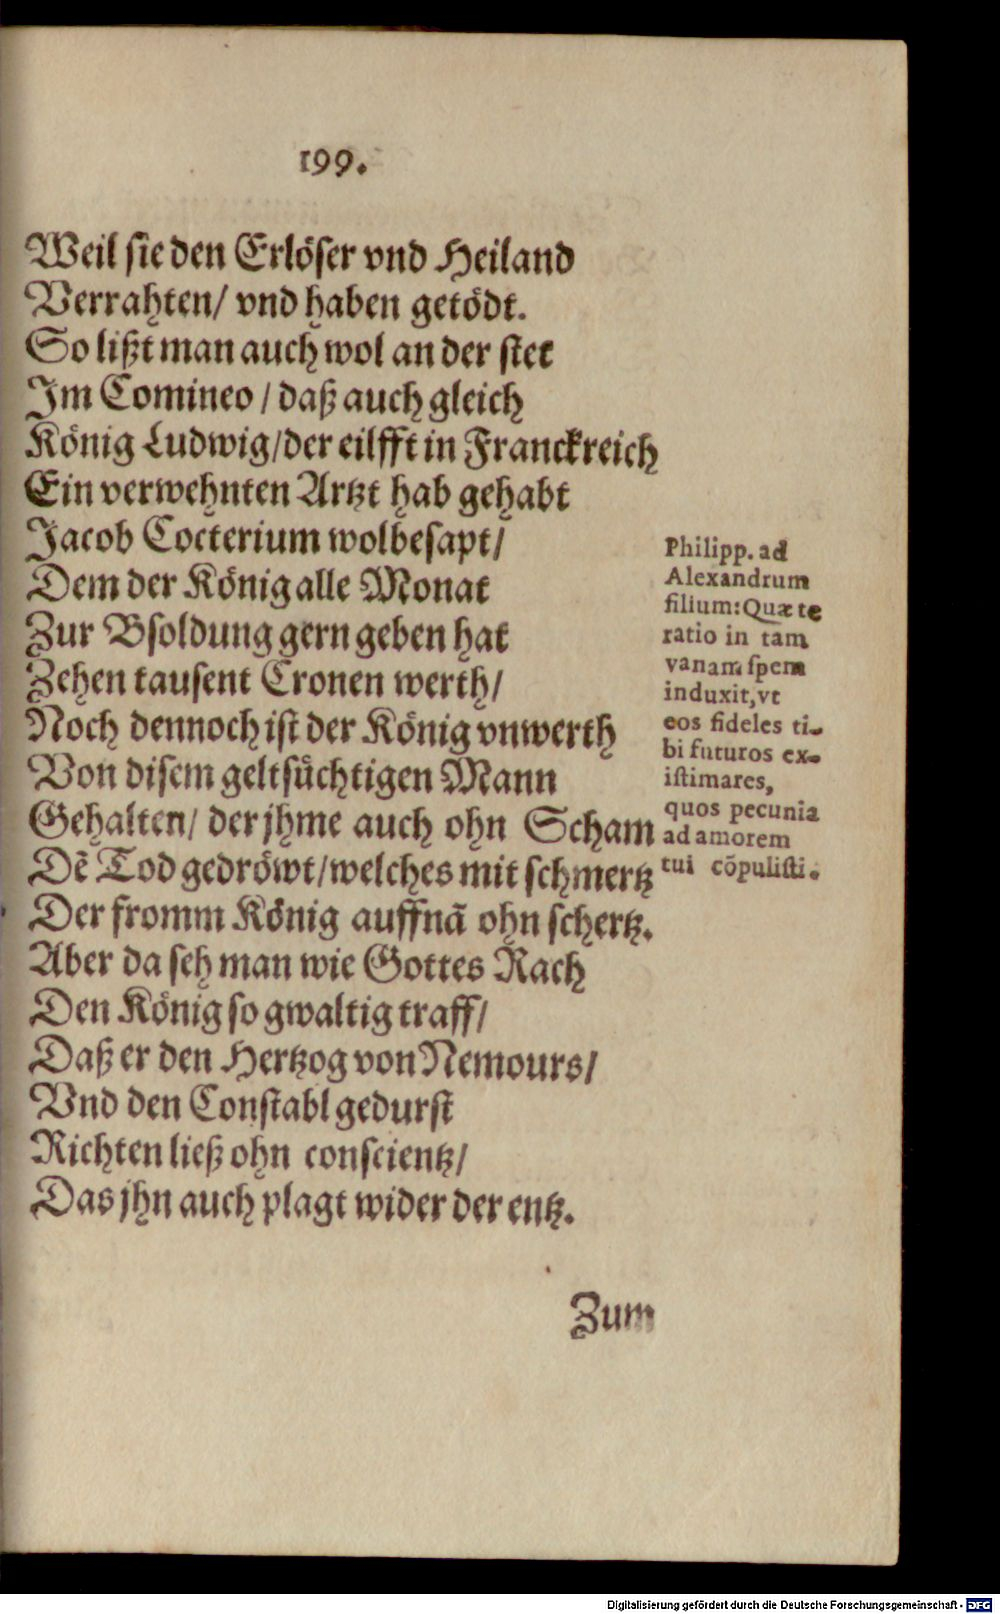 199.
Weil sie den Erlöser vnd Heiland
Verrahten/ vnd haben getödt.
So lißt man auch wol an der stet
Im Comineo / daß auch gleich
König Ludwig/der eilfft in Franckreich
Ein verwehnten Artzt hab gehabt
Jacob Cocterium wolbesapt/
Dem der König alle Monat
Zur Bsoldung gern geben hat
Zehen tausent Cronen werth/
Noch dennoch ist der König vnwerth
Von disem geltsüchtigen Mann
Gehalten/ der jhme auch ohn Scham
Dẽ Tod gedröwt/welches mit schmertz
Der fromm König auffnã ohn schertz.
Aber da seh man wie Gottes Rach
Den König so gwaltig traff/
Daß er den Hertzog von Nemours/
Vnd den Constabl gedurst
Richten ließ ohn conscientz/
Das jhn auch plagt wider der entz.
Philipp. ad
Alexandrum
filium: Quæ te
ratio in tam
vanam spem
induxit, vt
eos fideles ti-
bi futuros ex-
istimares,
quos pecunia
ad amorem
tui cõpulisti.
Zum
Digitalisierung gefördert durch die Deutsche Forschungsgemeinschaft - DFG